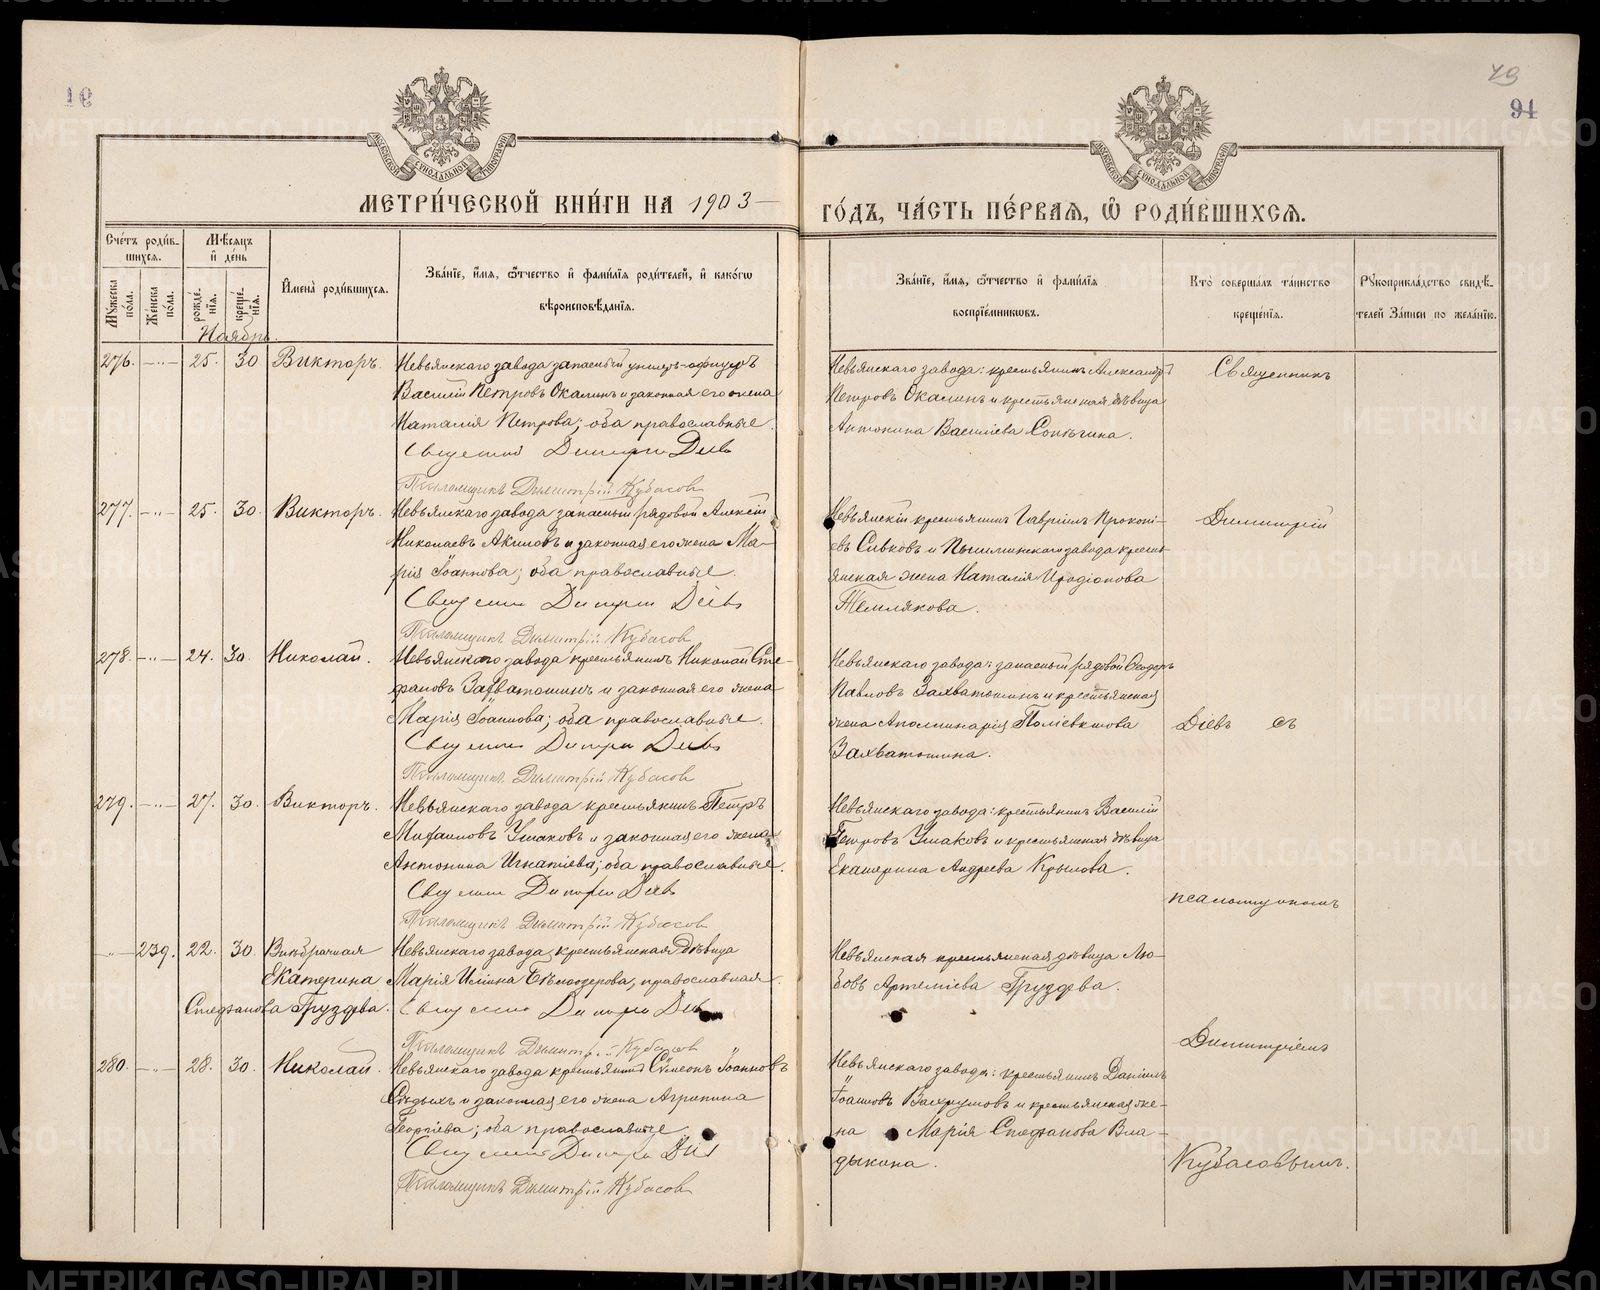 79
94
МЕТРИ́ЧЕСКОЙ КНИ́ГИ НА 1903
ГО́ДЪ, ЧА́СТЬ ПЕ́РВАѦ, Ѽ РОДИ́ВШИХСѦ.
Сче́тъ роди́в-
шихсѧ.
Мѣ́сѧцъ
и҆ де́нь
Мꙋ́жеска по́ла.
Же́нска по́ла.
рожде́нїѧ.
креще́нїѧ.
И҆мена̀ роди́вшихсѧ.
Зва́нїе, и҆́мѧ, ѻ҆́тчество и҆ фамı́лїѧ роди́телей, и҆ како́гѡ
вѣроисповѣ́данїѧ.
Зва́нїе, и҆́мѧ, ѻ҆́тчество и҆ фамı́лїѧ
воспрїе́мникѡвъ.
Кто̀ соверша́лъ та́инство
креще́нїѧ.
Рꙋкоприкла́дство свидѣ́-
телей За́писи по жела́нїю.
Ноябрь.
276. 25. 30 Викторъ.
Невьянскаго завода запасный унтеръ-офицеръ
Василій Петровъ Окалинъ и законная его жена
Наталія Петрова; оба православные.
Священник Димитрий Диев
Псаломщикъ Димитрій Кубасовъ
Невьянскаго завода: крестьянинъ Александръ
Петровъ Окалинъ и крестьянская дѣвица
Антонина Василіева
Священникъ
277. 25. 30. Викторъ.
Невьянскаго завода запасный рядовой Алексій
Николаевъ Акиловъ и законная его жена Ма-
рія Іоаннова; оба православные.
Священник Димитрий Диевъ
Псаломщикъ Димитрій Кубасов
Невьянскій крестьянинъ Гавріилъ Прокопі-
евъ Сивковъ и Пышминскаго завода кресть-
янская жена Наталія Иродіонова
Темлякова.
Димитрій
278. 24. 30. Николай.
Невьянскаго завода крестьянинъ Николай Сте-
фановъ Захватошинъ и законная его жена
Марія Іоаннова; оба православные.
Священник Димитрий Диевъ
Псаломщикъ Димитрій Кубасов
Невьянскаго завода: запасный рядовой Ѳеодоръ
Павловъ Захватошинъ и крестьянская
жена Аполлинарія Поліевктова
Захватошина.
Діевъ съ
279. 27. 30. Викторъ.
Невьянскаго завода крестьянинъ Петръ
Михаиловъ Ушаковъ и законная его жена
Антонина Игнатіева; оба православные.
Священник Димитрий Диевъ
Псаломщикъ Димитрій Кубасов
Невьянскаго завода: крестьянинъ Василій
Петровъ Ушаковъ и крестьянская дѣвица
Екатерина Андреева Крылова.
псаломщикомъ
239. 22. 30. Внѣбрачная
Екатерина
Стефанова Груздева.
Невьянскаго завода крестьянская дѣвица
Марія Иліина Бѣлоозерова, православная.
Священник Димитрий Диев
Псаломщикъ Димитрій Кубасов
Невьянская крестьянская дѣвица Лю-
бовь Артеміева Груздева.
Димитріемъ
280. 28. 30. Николай.
Невьянскаго завода крестьянинъ Сѵмеонъ Іоанновъ
Сѣдыхъ и законная его жена Агрипина
Георгіева; оба православные.
Священник Димитрий Диев
Псаломщикъ Димитрій Кубасовъ
Невьянскаго завода: крестьянинъ Даніилъ
Іоанновъ Вахрушовъ и крестьянская же-
на Марія Стефанова Вла-
дыкина.
Кубасовымъ.
METRIKI.GASO-URAL.RU